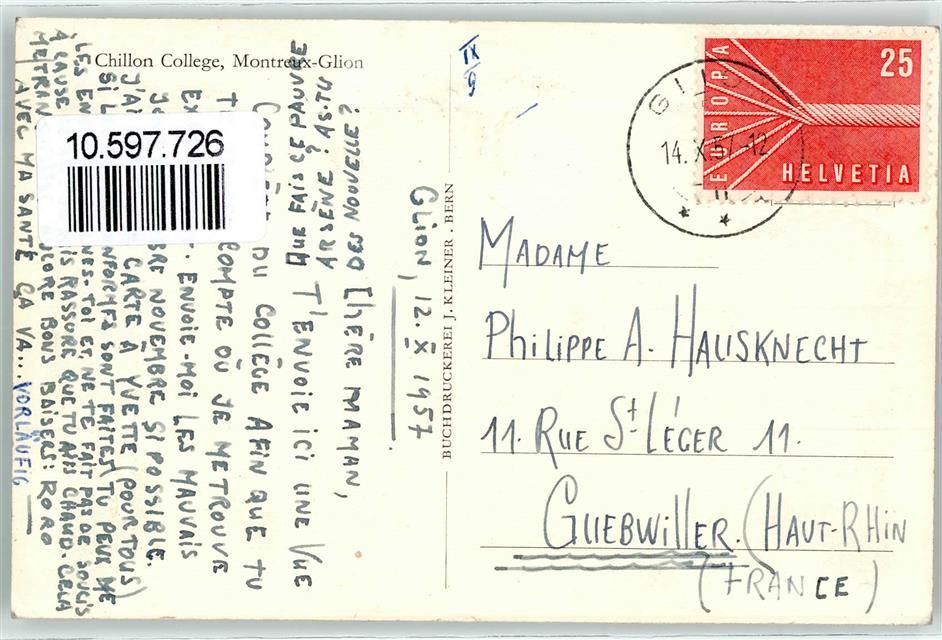 Chillon College, Montreux-Glion
GLION, 12. X 1957
CHÈRE MAMAN,
T'ENVOIE ICI UNE VUE
DU COLLÈGE AFIN QUE TU
COMPTE OÙ JE ME TROUVE
ENVOIE-MOI LES MAUVAIS
NOVEMBRE SI POSSIBLE.
J'AI CARTE À YVETTE (POUR TOUS)
SI L SONT FAITES, TU PEUX ME
LES EN TOI ET NE TE FAIT PAS DE SOUCIS
À CAUSE RASSURE QUE TU AIS CHAUD. CELA
BONS BAISERS: RORO
AVEC MA SANTÉ ÇA VA... VORLÄUFIG
QUE FAIS CE PAUVRE
ARSÈNE? AS-TU
DES NOUVELLE?
10.597.726
BUCHDRUCKEREI J. KLEINER . BERN
IX
9
14. X. 57-12
EUROPA
25
HELVETIA
MADAME
PHILIPPE A. HAUSKNECHT
11. RUE ST LÉGER 11.
GUEBWILLER. (HAUT-RHIN
(FRANCE)